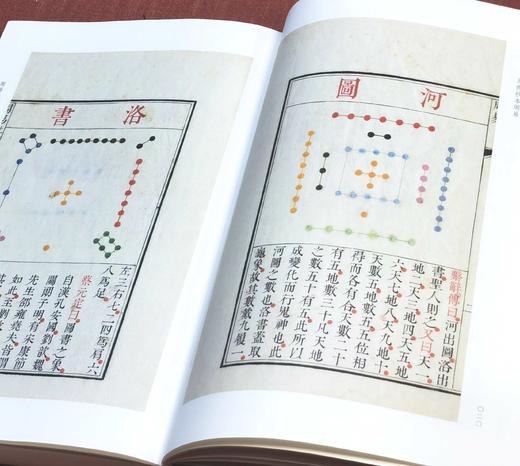 河圖
繫辭傳曰河出圖洛出
書聖人則之又曰天一
地二天三地四天五地
六天七地八天九地十
天數五地數五五位相
得而各有合天數二十
有五地數三十凡天地
之數五十有五此所以
成變化而行鬼神也此
河圖之數也洛書蓋取
龜象故其數戴九履一
二
〇二〇
洛書
左三右七二四為肩六
八為足
蔡元定曰圖書之象
自漢孔安國劉歆魏
關朗子明有宋康節
先生邵雍堯夫皆謂
如此至劉牧